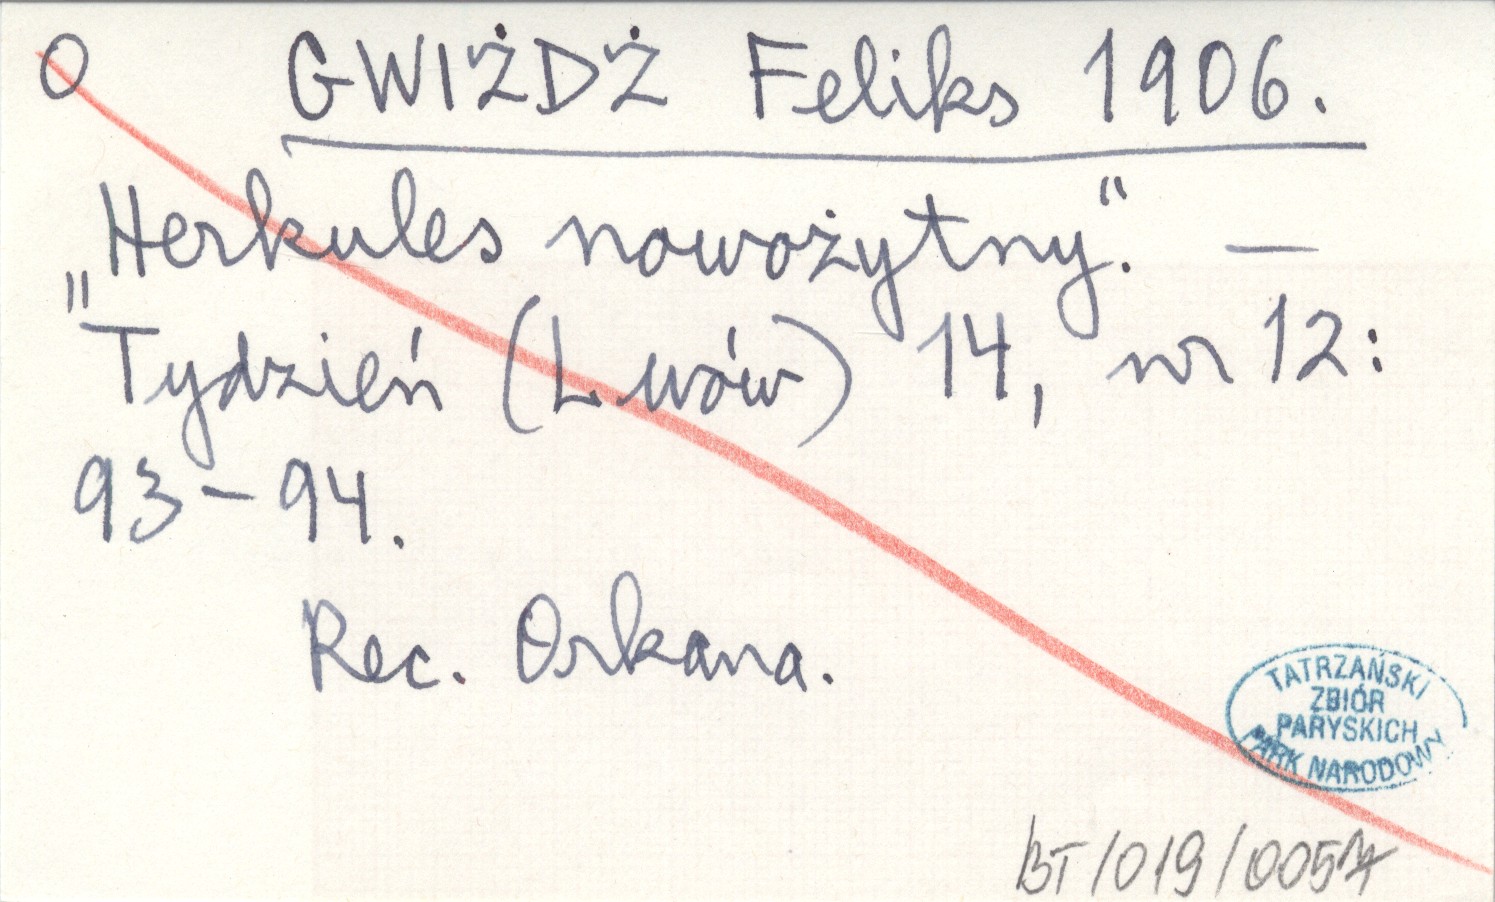 O GWIŻDŻ Feliks 1906.
„Herkules nowożytny". —
Tydzień (Lwów) 14, nr 12:
93-94.
Rec. Orkana.
TATRZAŃSKI
ZBIÓR
PARYSKICH
PARK NARODOWY
BT/019/0057